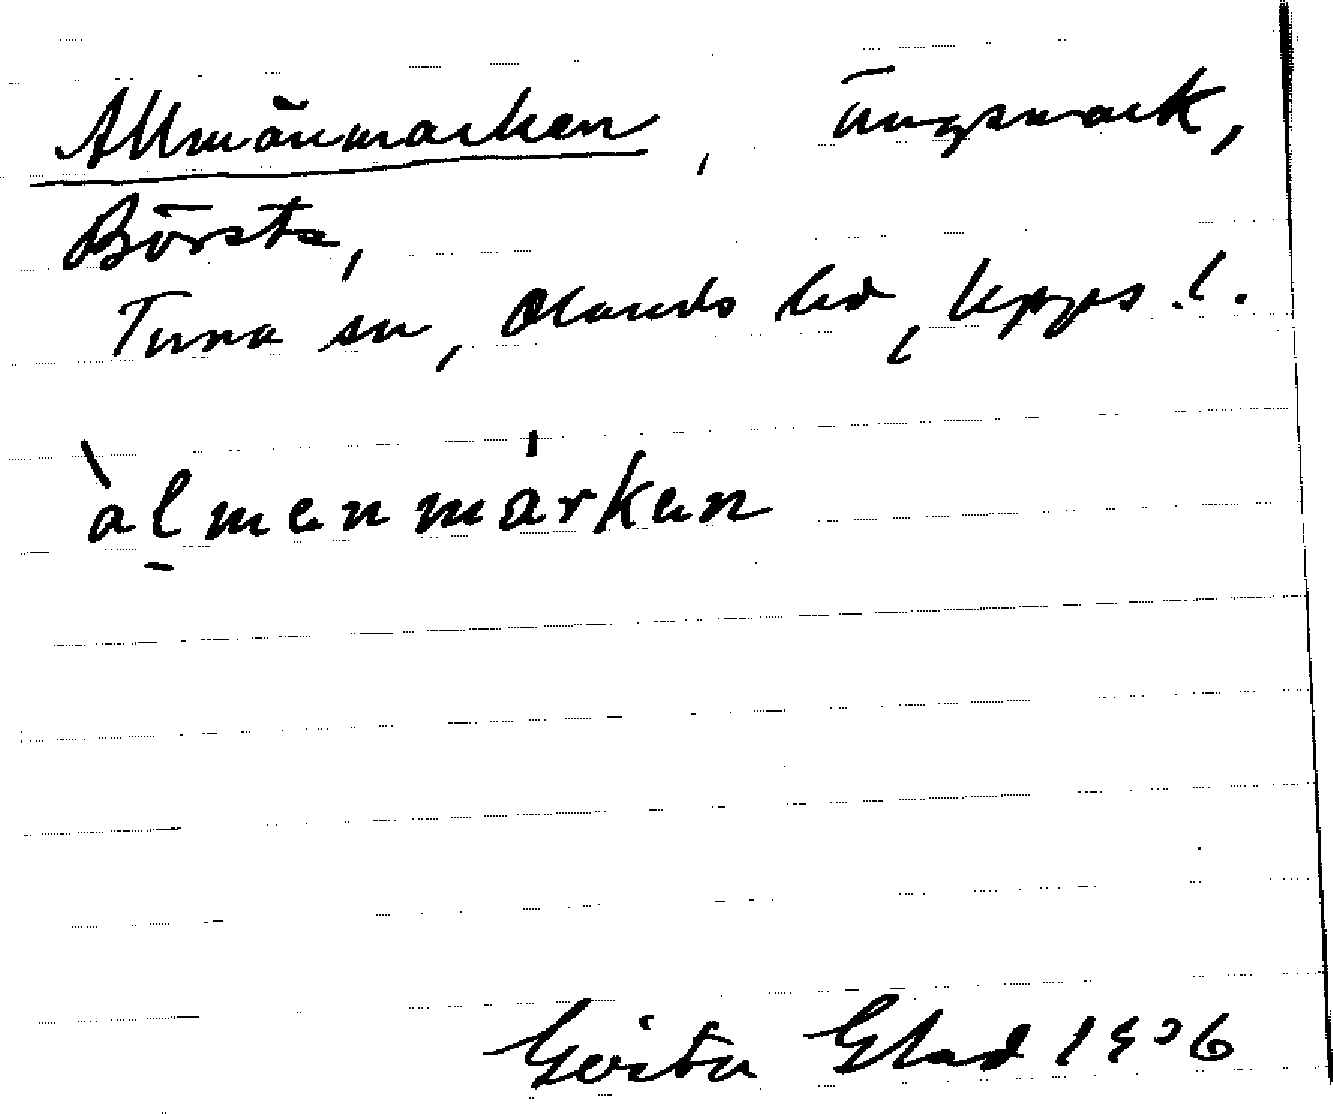 Allmänmarken, ängsmark,
Börsta,
Tuna sn, Olands hd, Upps. l.
àlmenmárken
Gösta Glad 1936